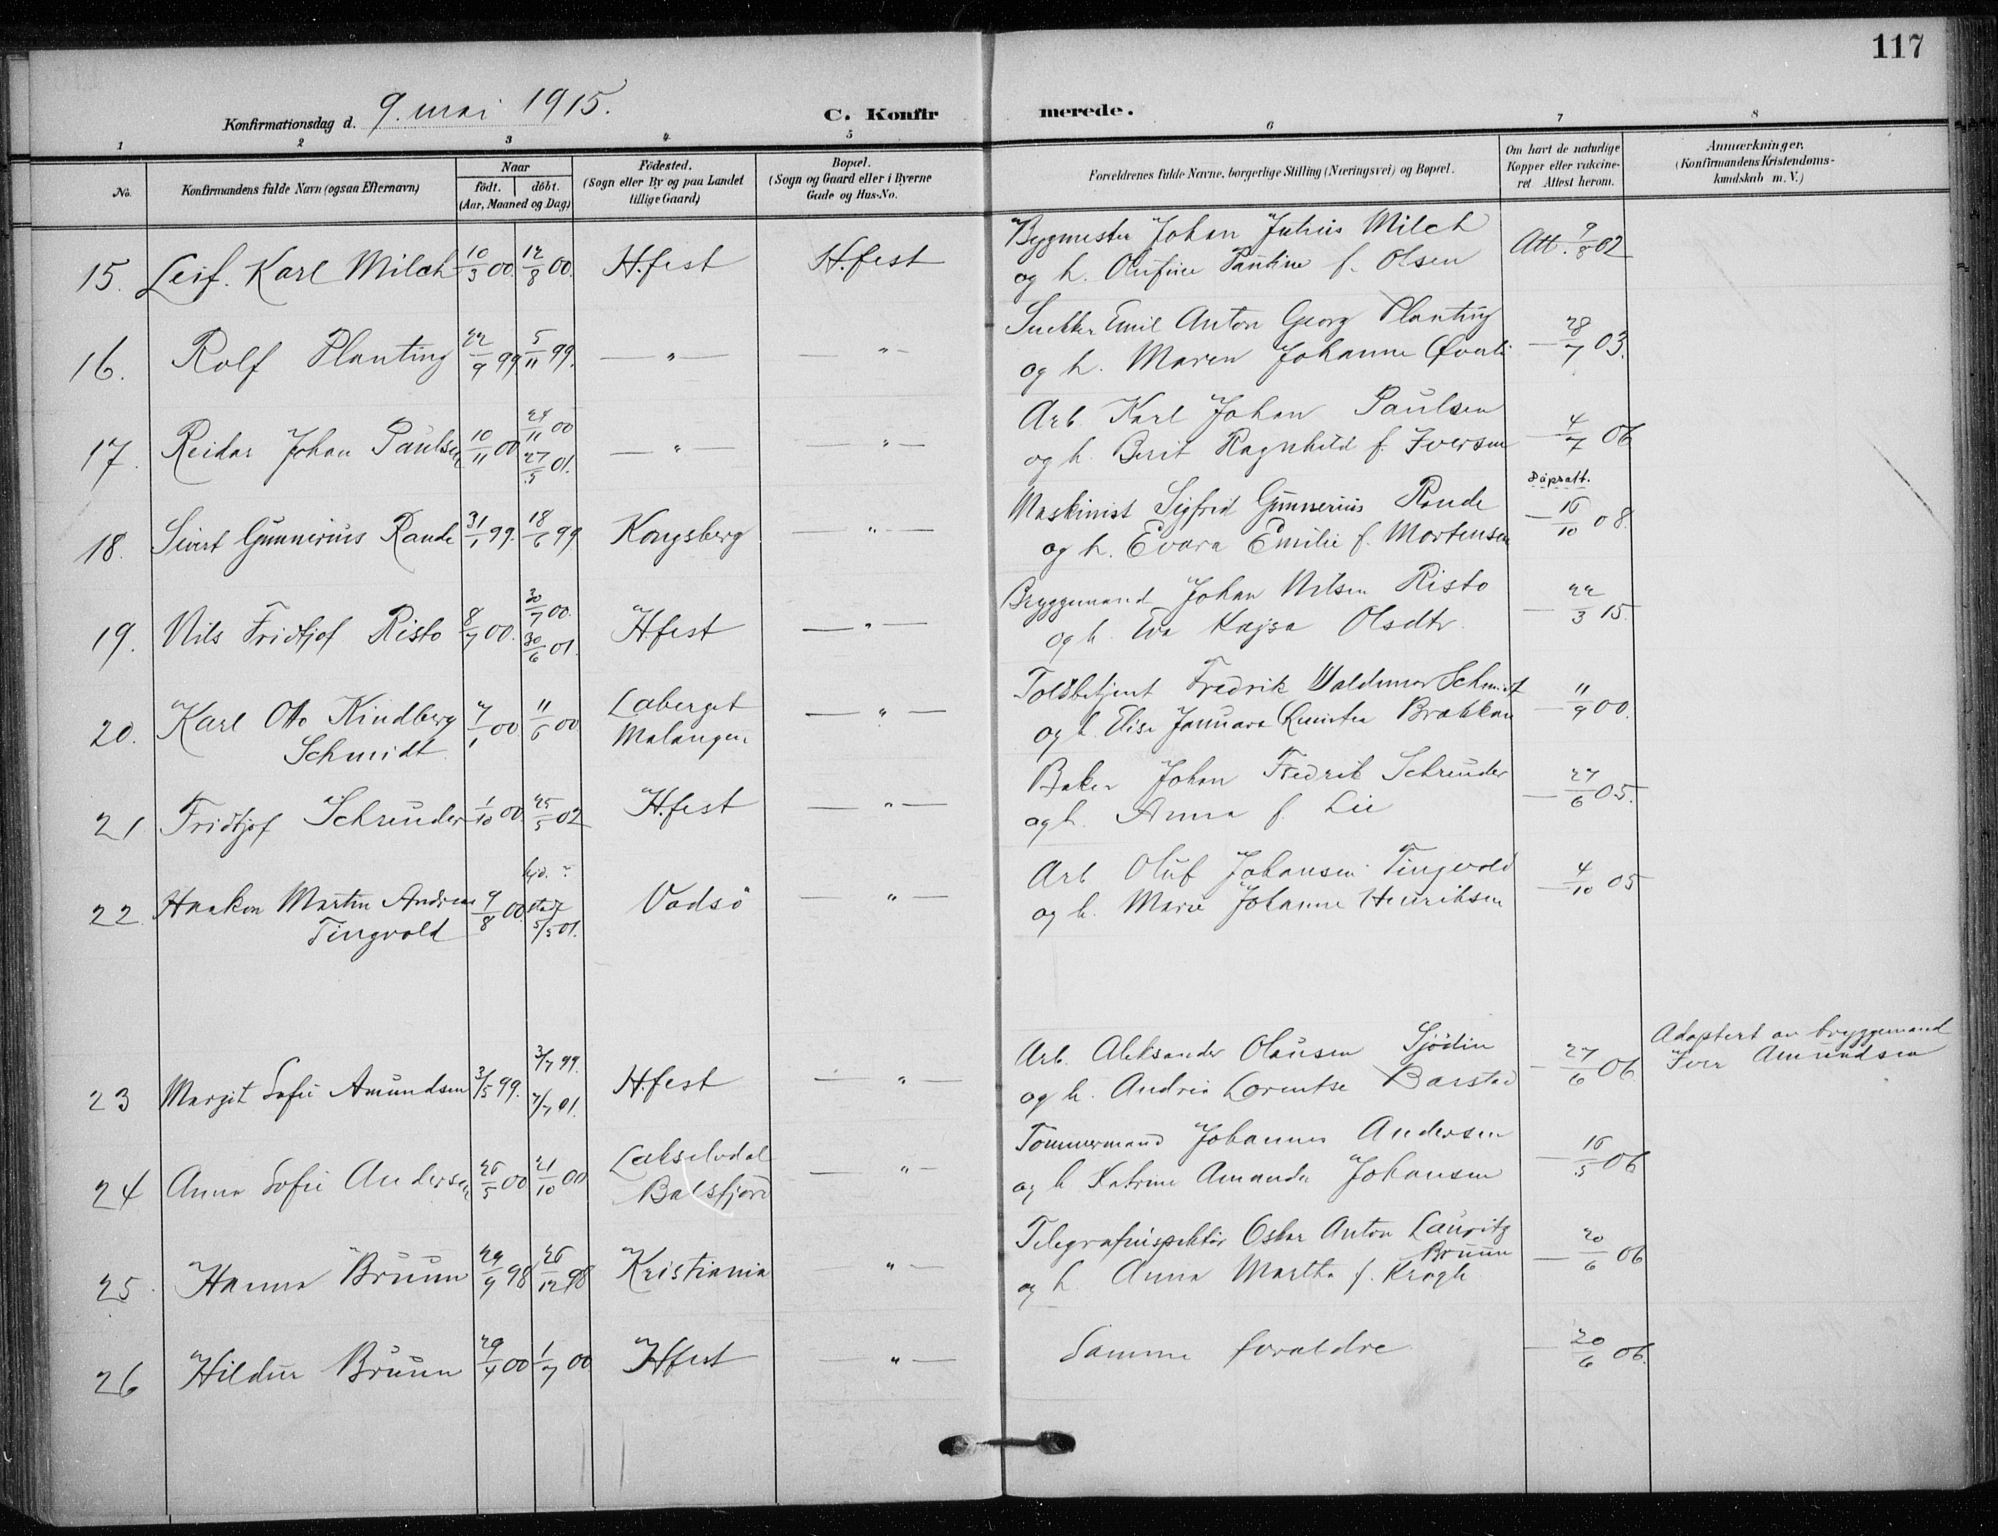 117
Konfirmationsdag d. 9. mai 1915.
C. Konfirmerede.
1 2 3 4 5 6 7 8
No.
Konfirmandens fulde Navn (ogsaa Efternavn)
Naar
født. døbt.
(Aar, Maaned og Dag)
Fødested.
(Sogn eller By og paa Landet
tillige Gaard)
Bopæl.
(Sogn og Gaard eller i Byerne
Gade og Hus-No.
Forældrenes fulde Navne, borgerlige Stilling (Næringsvei) og Bopæl.
Om havt de naturlige
Kopper eller vakcine-
ret Attest herom.
Anmærkninger.
(Konfirmandens Kristendoms-
kundskab m. V.)
15. Leif. Karl Milch 10/3 00 12/8 00. H.fest H.fest Bygmester Johan Julius Milch Att. 9/8 02
og h. Olufine Pauline f. Olsen
16. Rolf Planting 22/9 99 5/11 99. — " — " — Emil Anton Georg Planting — 28/7 03.
og h. Maren Johanne Øverli
17. Reidar Johan Paulsen 10/11 00 24/11 00 — " — — " — Arb. Karl Johan Paulsen — 4/7 06
27/5 01. og h. Berit Ragnhild f. Iversen
Dåpsatt.
18. Sivert Gunnerius Rande 31/1 99. 18/6 99 Kongsberg — " — Maskinist Sigfrid Gunnerius Rande — 16/10 08.
og h. Evara Emilie f. Mortensen
19. Nils Fridtjof Risto 8/7 00. 30/7 00. H.fest — " — Bryggemand Johan Nilsen Risto — 22/3 15.
30/6 01. og h. Eva Kajsa Olsdtr.
20. Karl Otto Kindberg 7/1 00 11/6 00 Laberget — " — Toldbetjent Fredrik Waldemar Schmidt — 11/9 00.
Schmidt Malangen og h. Elise Januara Brakkan
21 Fridtjof Schreuder 1/10 00 25/5 02 H.fest — " — Baker Johan Fredrik Schreuder — 27/6 05.
og h. Anna f. Lie
22. Haakon Martin Andreas 9/8 00 Vadsö — " — Arb Oluf Johansen Tingvold — 4/10 05
Tingvold 5/5 01. og h. Marie Johanne Henriksen
23 Margit Sofie Amundsen 3/5 99. 3/7 99. H.fest — " — Arb. Aleksander Olausen Sjödin — 27/6 06 Adoptert av bryggemand
7/7 01. og h. Andrea Lorentse Barstad Iver Amundsen
24 Anna Sofie Andersen 26/5 00 21/10 00 Lakselvdal — " — Tömmermand Johannes Andersen — 16/5 06
Balsfjord og h Katrine Amanda Johansen
25 Hanna Bruun 29/9 98 26/12 98 Kristiania — " — Telegrafinspektör Oskar Anton Lauritz — 20/6 06
Bruun
og h. Anna Martha f. Krogh
26 Hildur Bruun 29/4 00 1/7 00 H.fest — " — Samme forældre — 20/6 06.